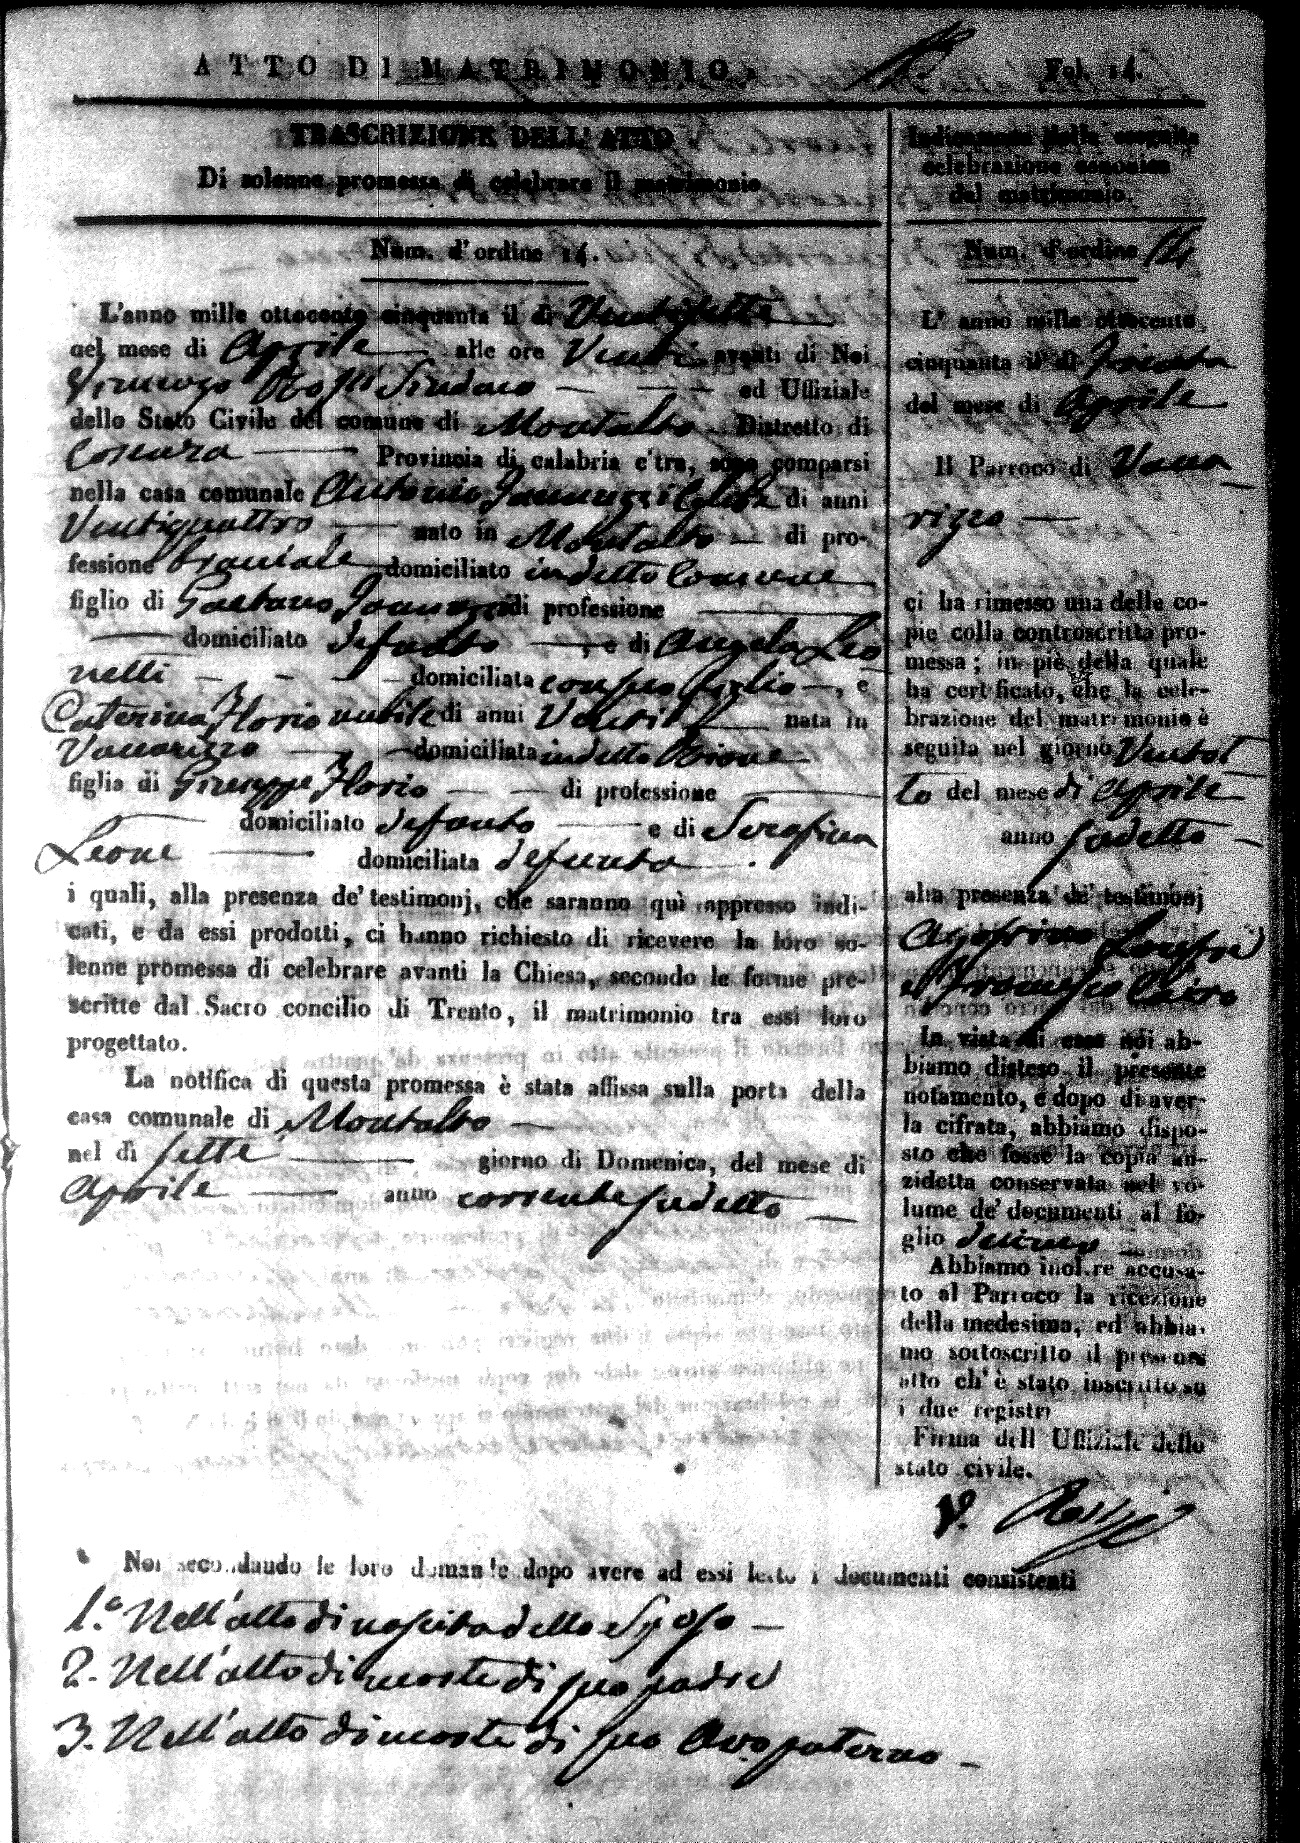 ATTO DI MATRIMONIO. Fol. 14.
TRASCRIZIONE DELL'ATTO
Di solenne promessa di celebrare il matrimonio
Num. d'ordine 14.
L'anno mille ottocento cinquanta il dì Ventisette
nel mese di Aprile alle ore Venti avanti di Noi
Vincenzo Rossi Sindaco ed Uffiziale
dello Stato Civile del comune di Montalto Distretto di
Cosenza Provincia di calabria c'tra, sono comparsi
nella casa comunale Antonio Jannuzzi di anni
Ventiquattro nato in Montalto di pro-
fessione braciale domiciliato in detto Comune
figlio di Gaetano Jannuzzi di professione
domiciliato defunto , e di Angela Leo
nelli domiciliata con suo figlio , e
Caterina Florio nubile di anni nata in
Vaccarizzo domiciliata in detto Rione
figlia di Giuseppe Florio di professione
domiciliato defunto e di Serafina
Leone domiciliata defunta .
i quali, alla presenza de' testimonj, che saranno quì appresso indi-
cati, e da essi prodotti, ci hanno richiesto di ricevere la loro so-
lenne promessa di celebrare avanti la Chiesa, secondo le forme pre-
scritte dal Sacro concilio di Trento, il matrimonio tra essi loro
progettato.
La notifica di questa promessa è stata affissa sulla porta della
casa comunale di Montalto
nel dì sette giorno di Domenica, del mese di
Aprile anno corrente sudetto
Indicazione della seguita
celebrazione canonica
del matrimonio.
Num. d'ordine 14
L' anno mille ottocento
cinquanta il dì Trenta
del mese di Aprile
Il Parroco di Vacca
rizzo
ci ha rimesso una delle co-
pie colla controscritta pro-
messa; in piè della quale
ha certificato, che la cele-
brazione del matrimonio è
seguita nel giorno Ventot
to del mese di Aprile
anno sudetto
alla presenza de' testimonj
Agostino
e Francesco Cairo
In vista di essa noi ab-
biamo disteso il presente
notamento, e dopo di aver-
la cifrata, abbiamo dispo-
sto che fosse la copia an-
zidetta conservata nel vo-
lume de' documenti al fo-
glio
Abbiamo inoltre accusa-
to al Parroco la ricezione
della medesima, ed abbia-
mo sottoscritto il presente
atto ch' è stato inscritto su
i due registri
Firma dell Uffiziale dello
stato civile.
V. Rossi
Noi secondando le loro domande dopo avere ad essi letto i documenti consistenti
1.° Nell'atto di nascita dello Sposo
2. Nell'atto di morte di suo padre
3. Nell'atto di morte di suo Avo paterno